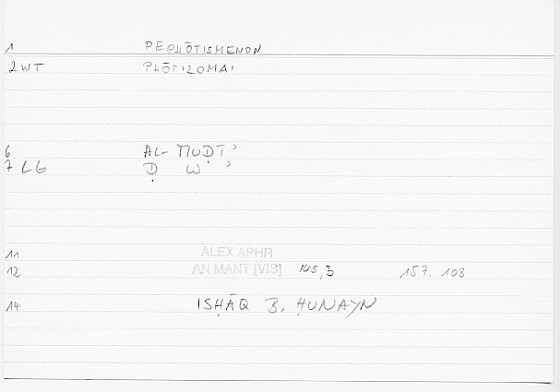 1 PEPHŌTISMENON
2 WT PHŌTIZOMAI
6 AL-MUḌĪʾ
7 LG Ḍ W ʾ
11 ALEX APHR
12 AN MANT [VIS] 145,3 157.103
14 ISḤĀQ B. ḤUNAYN